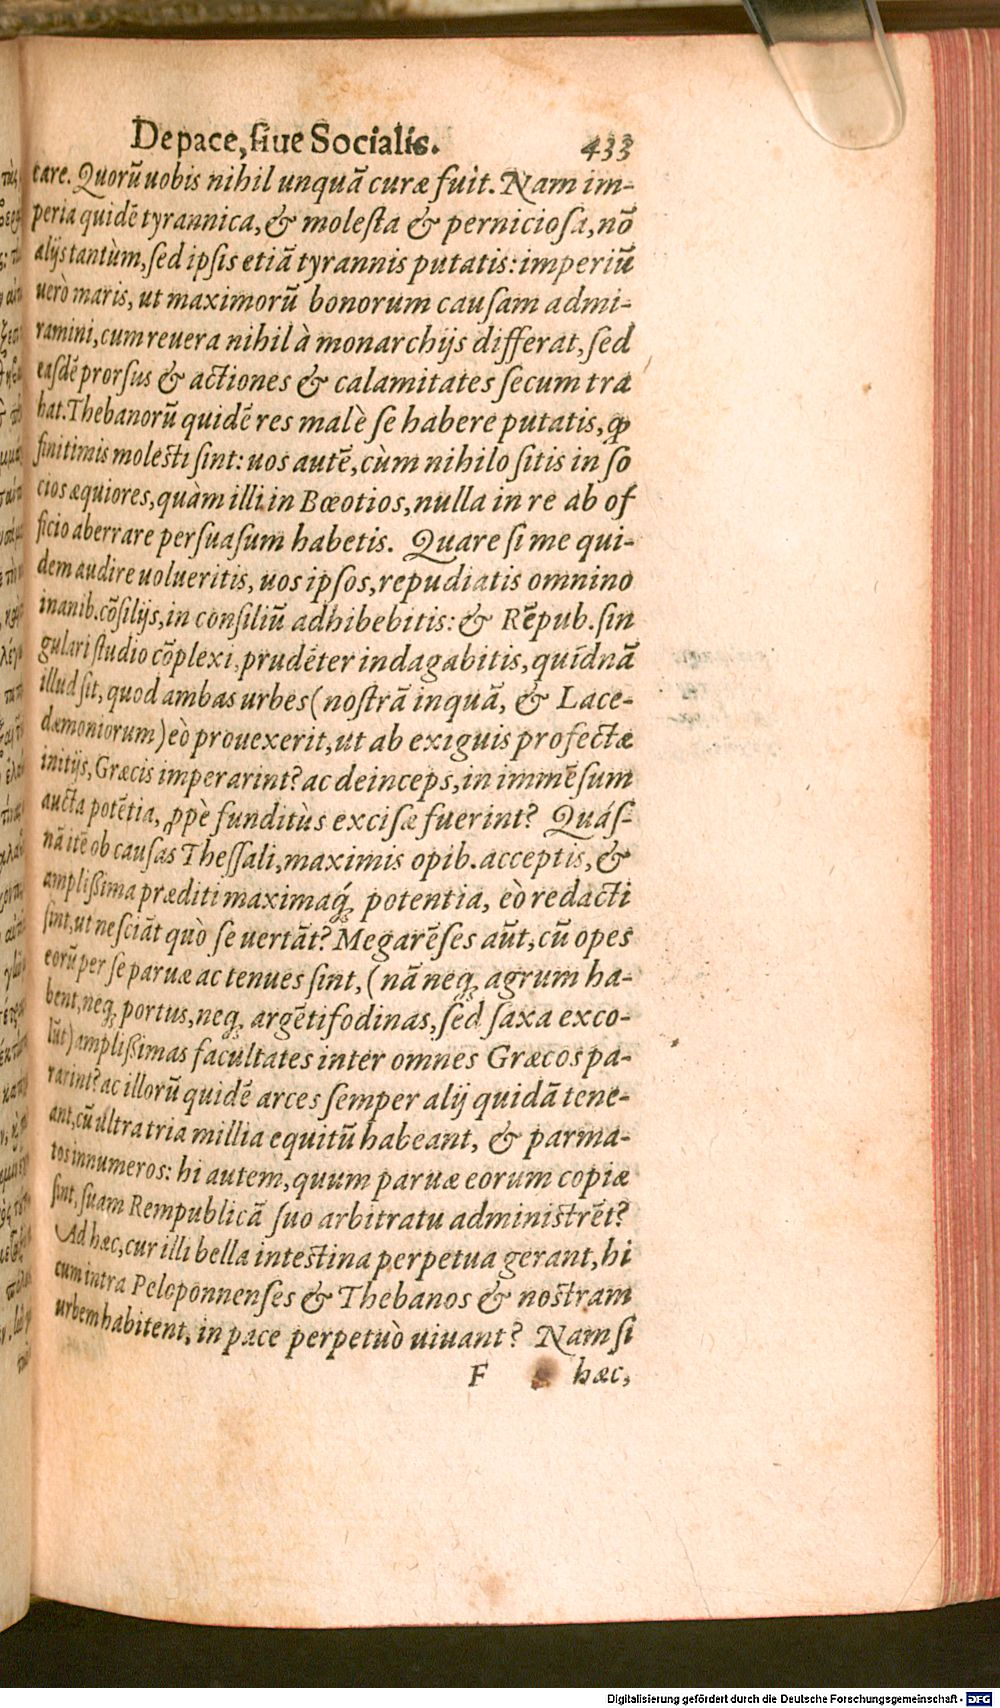 De pace, siue Socialis. 433
care. Quorũ uobis nihil unquã curæ fuit. Nam im-
peria quidẽ tyrannica, & molesta & perniciosa, nõ
alijs tantùm, sed ipsis etiã tyrannis putatis: imperiũ
uerò maris, ut maximorũ bonorum causam admi-
ramini, cum reuera nihil à monarchijs differat, sed
easdẽ prorsus & actiones & calamitates secum tra
hat. Thebanorũ quidẽ res malè se habere putatis, ꝙ
finitimis molesti sint: uos autẽ, cùm nihilo sitis in so
cios æquiores, quàm illi in Bœotios, nulla in re ab of
ficio aberrare persuasum habetis. Quare si me qui-
dem audire uolueritis, uos ipsos, repudiatis omnino
inanib. cõsilijs, in consiliũ adhibebitis: & Rẽpub. sin
gulari studio cõplexi, prudẽter indagabitis, quidnã
illud sit, quod ambas urbes (nostrã inquã, & Lace-
dæmoniorum) eò prouexerit, ut ab exiguis profectæ
initijs, Græcis imperarint? ac deinceps, in immẽsum
aucta potẽtia, ꝓpè funditùs excisæ fuerint? Quás-
nã itẽ ob causas Thessali, maximis opib. acceptis, &
amplißima præditi maximaq́; potentia, eò redacti
sint, ut nesciãt quò se uertãt? Megarẽses aũt, cũ opes
eorũ per se paruæ ac tenues sint, (nã neq; agrum ha-
bent, neq; portus, neq; argẽtifodinas, sed saxa exco-
lũt) amplißimas facultates inter omnes Græcos pa-
rarint? ac illorũ quidẽ arces semper alij quidã tene-
ant, cũ ultra tria millia equitũ habeant, & parma-
tos innumeros: hi autem, quum paruæ eorum copiæ
sint, suam Rempublicã suo arbitratu administrẽt?
Ad hæc, cur illi bella intestina perpetua gerant, hi
cum intra Peloponnenses & Thebanos & nostram
urbem habitent, in pace perpetuò uiuant? Nam si
F hæc,
Digitalisierung gefördert durch die Deutsche Forschungsgemeinschaft - DFG